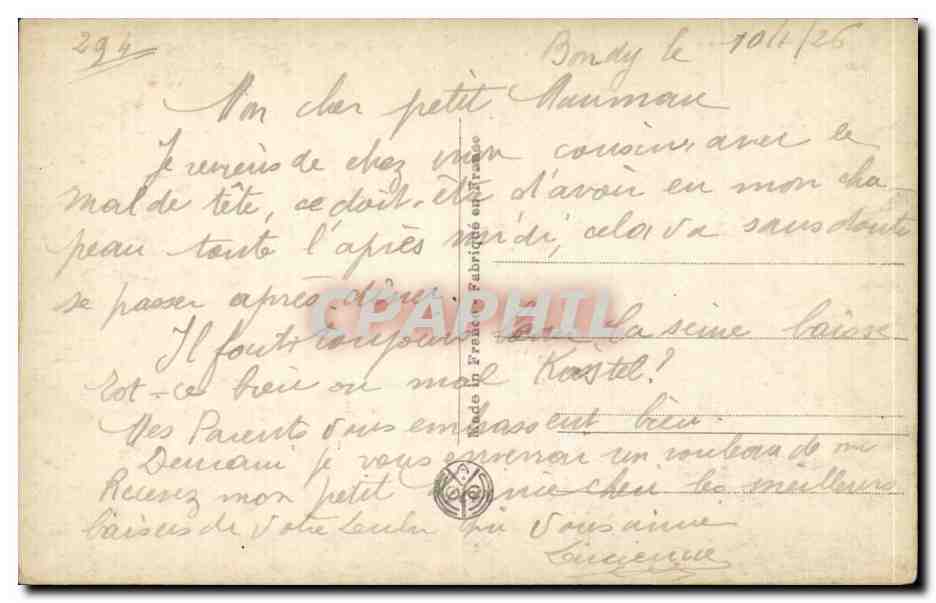 294
Bondy le 10/1/26
Mon cher petit
Je reviens de chez mon cousin avec le
mal de tête, ce doit-être d'avoir eu mon cha-
peau toute l'après midi, cela va sans doute
se passer après dîner.
Il fait toujours la seine baisse
Est-ce bien ou mal
Mes Parents vous embrassent bien.
Demain je vous enverrai un rouleau de
Recevez mon petit chéri les meilleurs
baisers de votre Lulu qui vous aime
Lucienne
Made in France - Fabriqué en France
CPAPHIL